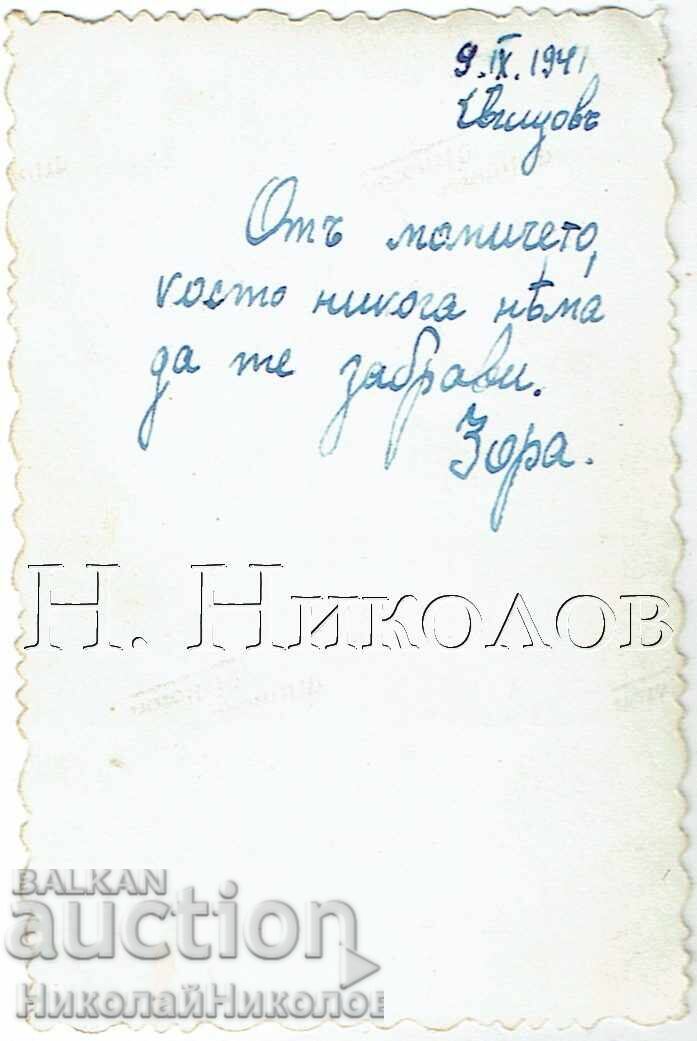 9.IX.1941
Свищовъ
Отъ момичето,
което никога нѣма
да те забрави.
Зора.
Н. Николов
BALKAN
auction
НиколайНиколов